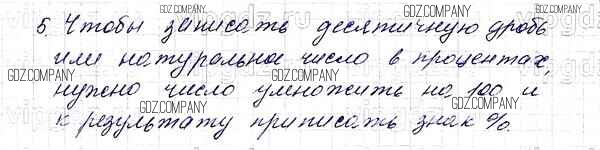 5. Чтобы записать десятичную дробь
или натуральное число в процентах,
нужно число умножить на 100 и
к результату приписать знак %.
GDZ.COMPANY
GDZ.COMPANY
GDZ.COMPANY
GDZ.COMPANY
GDZ.COMPANY
GDZ.COMPANY
GDZ.COMPANY
GDZ.COMPANY
GDZ.COMPANY